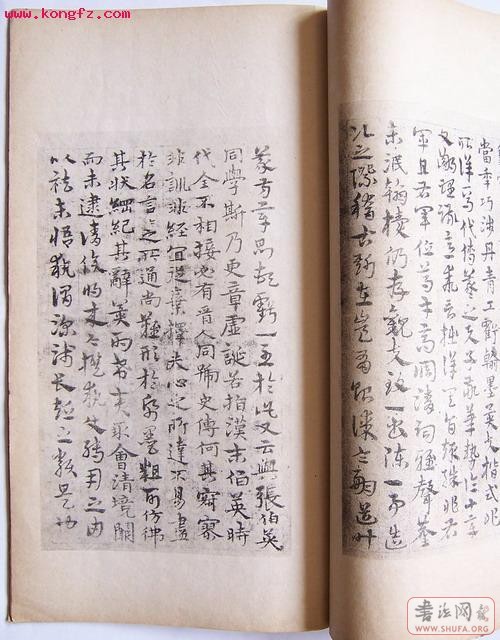 www.kongfz.com
當年巧涉丹青工虧翰墨異夫楷式非
所詳焉代傳羲之與子敬筆勢論十章
文鄙理疎意乖言拙詳其旨趣殊非右
軍且右軍位重才高調清詞雅聲塵
未泯翰櫝仍存觀夫致一書陳一事造
次之際稽古斯在豈有貽謀令嗣道叶
義方章則頓虧一至於此又云與張伯英
同學斯乃更章虛誕若指漢末伯英時
代全不相接必有晉人同號史傳何其寂寥
非訓非經宜從棄擇夫心之所達不易盡
於名言言之所通尚難形於紙墨粗可仿佛
其狀綱紀其辭冀酌希夷取會清境闕
而未逮請俟將來今撰執使轉用之由
以祛未悟執謂深淺長短之類是也
書法网
WWW.SHUFA.ORG